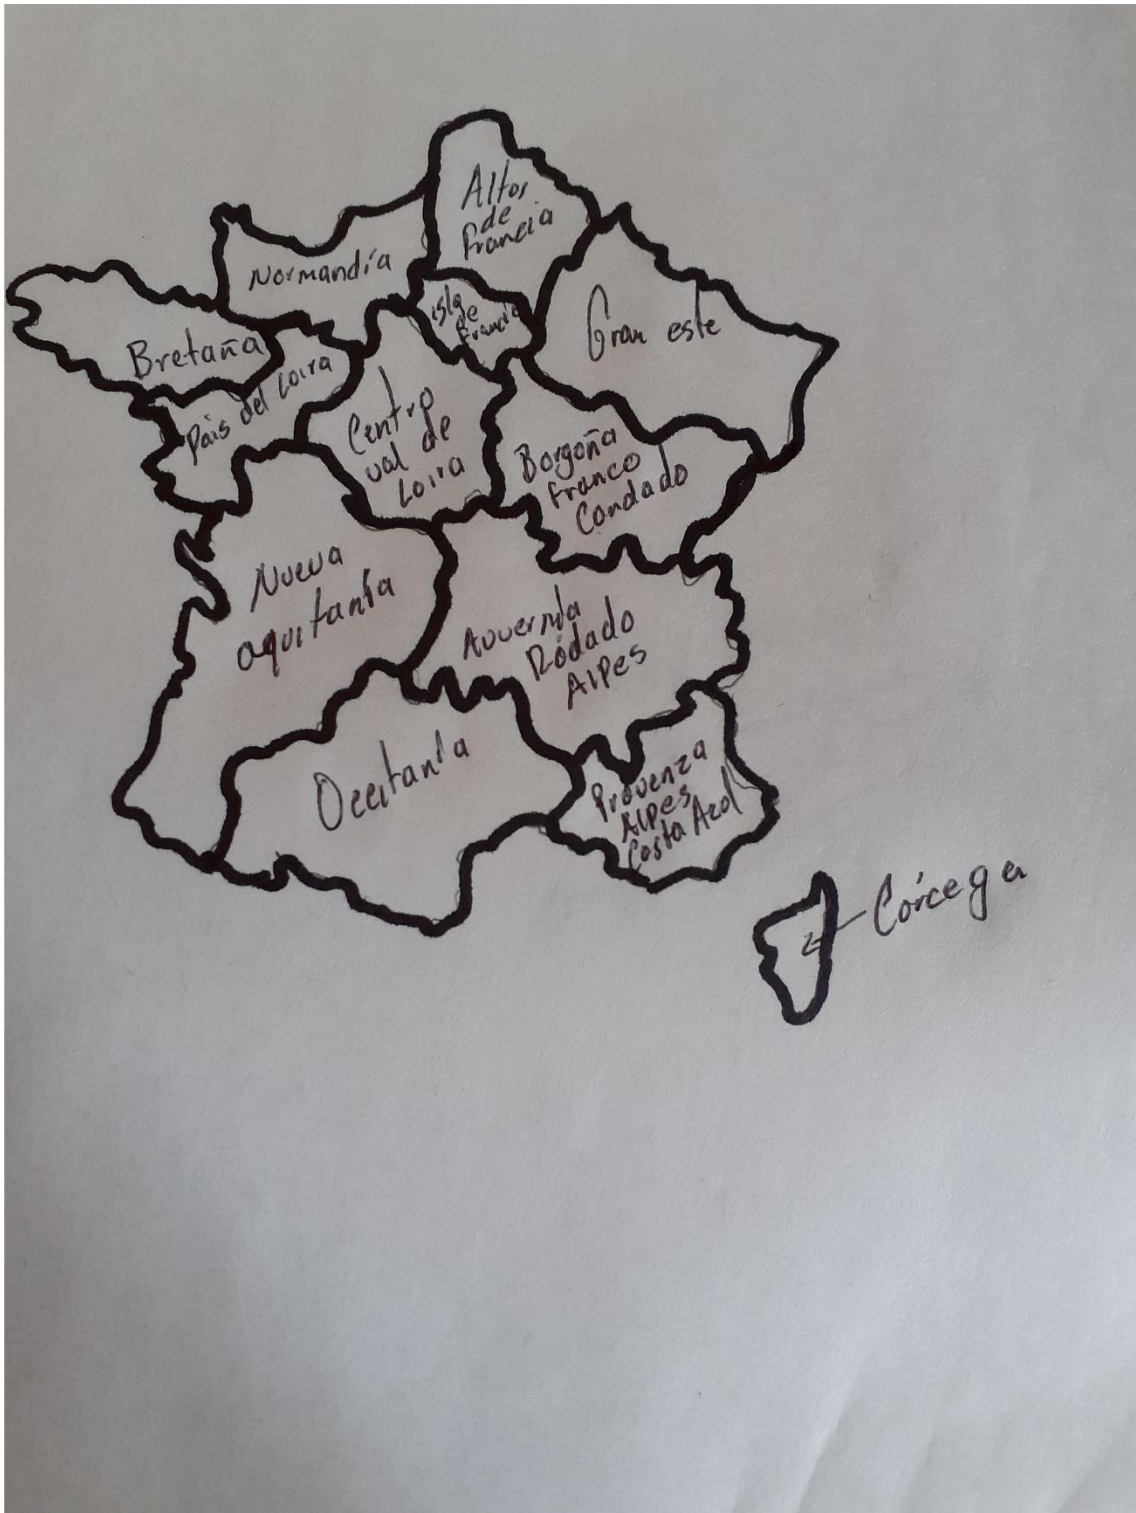 Altos
de
Francia
Normandía
isla
de
Francia
Gran este
Bretaña
País del Loira
Centro
val de
Loira
Borgoña
Franco
Condado
Nueva
aquitanía
Auvernia
Ródado
Alpes
Occitania
Provenza
Alpes
Costa Azul
Córcega